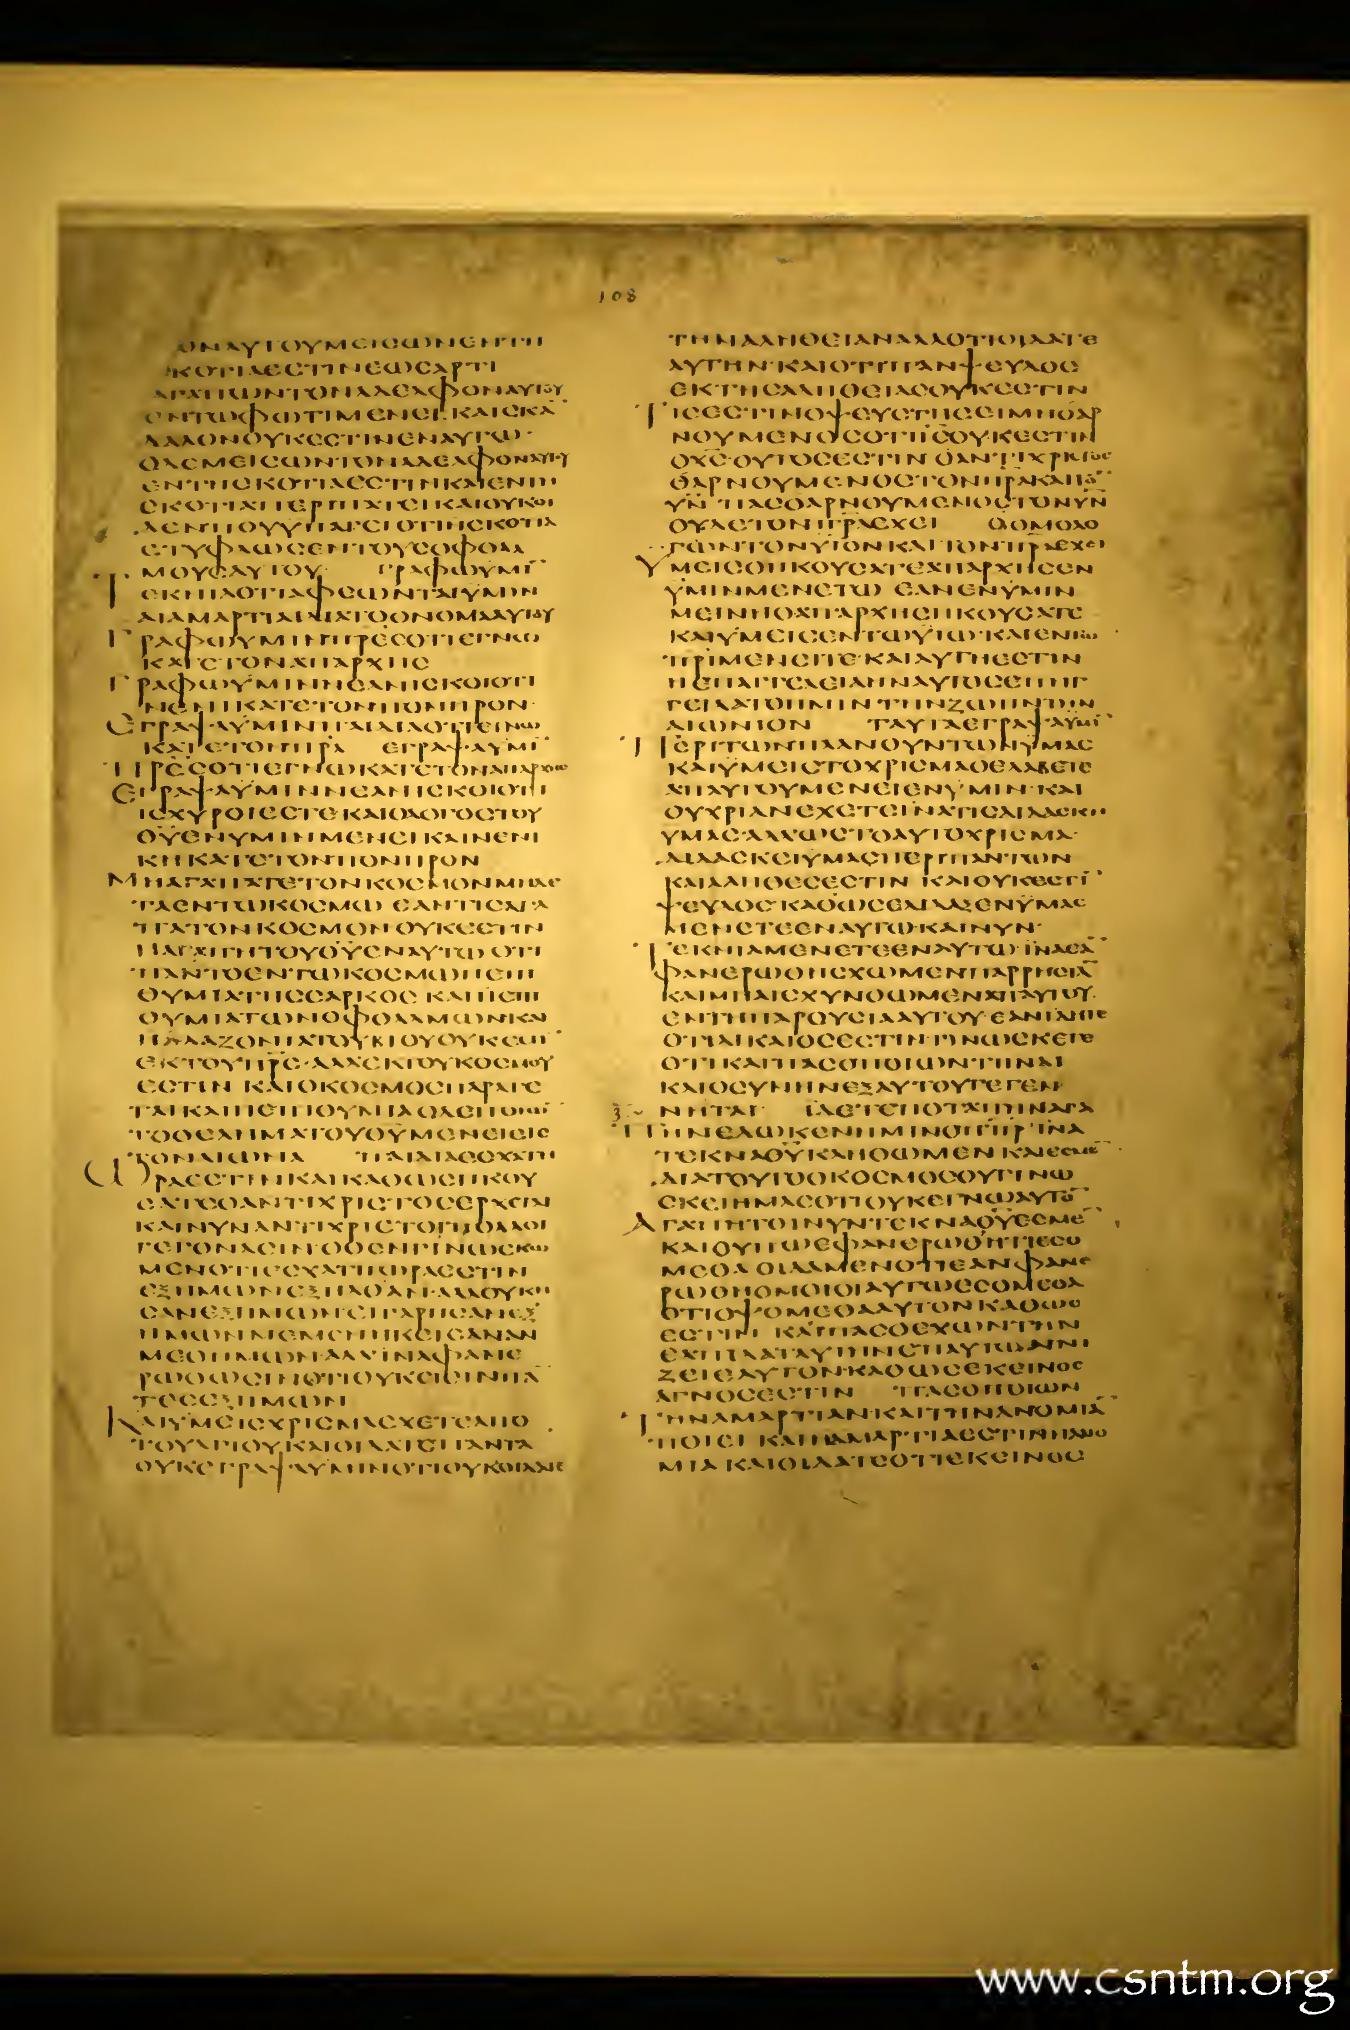 108
ΟΝΑΥΤΟΥΜΕΙΣΩΝΕΝΤΗ
ΣΚΟΤΙΑΕΣΤΙΝΕΩΣΑΡΤΙ
ΑΓΑΠΩΝΤΟΝΑΔΕΛΦΟΝΑΥΤΟΥ
ΕΝΤΩΦΩΤΙΜΕΝΕΙ·ΚΑΙΣΚΑ
ΔΑΛΟΝΟΥΚΕΣΤΙΝΕΝΑΥΤΩ·
ΟΔΕΜΕΙΣΩΝΤΟΝΑΔΕΛΦΟΝΑΥΤΟΥ
ΕΝΤΗΣΚΟΤΙΑΕΣΤΙΝΚΑΙΕΝΤΗ
ΣΚΟΤΙΑΠΕΡΙΠΑΤΕΙΚΑΙΟΥΚΟΙ
ΔΕΝΠΟΥΥΠΑΓΕΙΟΤΙΗΣΚΟΤΙΑ
ΕΤΥΦΛΩΣΕΝΤΟΥΣΟΦΘΑΛ
ΜΟΥΣΑΥΤΟΥ ΓΡΑΦΩΥΜΙ̅
ΤΕΚΝΙΑΟΤΙΑΦΕΩΝΤΑΙΥΜΙΝ
ΑΙΑΜΑΡΤΙΑΙΔΙΑΤΟΟΝΟΜΑΑΥΤΟΥ
ΓΡΑΦΩΥΜΙΝΠΡ̅Ε̅Σ̅ΟΤΙΕΓΝΩ
ΚΑΤΕΤΟΝΑΠΑΡΧΗΣ
ΓΡΑΦΩΥΜΙΝΝΕΑΝΙΣΚΟΙΟΤΙ
ΝΕΝΙΚΑΤΕΤΟΝΠΟΝΗΡΟΝ·
ΕΓΡΑΨΑΥΜΙΝΠΑΙΔΙΑΟΤΙΕΓΝΩ
ΚΑΤΕΤΟΝΠ̅Ρ̅Α̅ ΕΓΡΑΨΑΥΜΙ̅
Π̅Ρ̅Ε̅Σ̅ΟΤΙΕΓΝΩΚΑΤΕΤΟΝΑΠΑΡΧΗΣ
ΕΓΡΑΨΑΥΜΙΝΝΕΑΝΙΣΚΟΙΟΤΙ
ΙΣΧΥΡΟΙΕΣΤΕΚΑΙΟΛΟΓΟΣΤΟΥ
Θ̅Υ̅ΕΝΥΜΙΝΜΕΝΕΙΚΑΙΝΕΝΙ
ΚΗΚΑΤΕΤΟΝΠΟΝΗΡΟΝ
ΜΗΑΓΑΠΑΤΕΤΟΝΚΟΣΜΟΝΜΗΔΕ
ΤΑΕΝΤΩΚΟΣΜΩ ΕΑΝΤΙΣΑΓΑ
ΠΑΤΟΝΚΟΣΜΟΝΟΥΚΕΣΤΙΝ
ΗΑΓΑΠΗΤΟΥΘ̅Υ̅ΕΝΑΥΤΩΟΤΙ
ΠΑΝΤΟΕΝΤΩΚΟΣΜΩΗΕΠΙ
ΘΥΜΙΑΤΗΣΣΑΡΚΟΣ ΚΑΙΗΕΠΙ
ΘΥΜΙΑΤΩΝΟΦΘΑΛΜΩΝΚΑΙ
ΗΑΛΑΖΟΝΙΑΤΟΥΒΙΟΥΟΥΚΕΣΤΙ̅
ΕΚΤΟΥΠ̅Ρ̅Σ̅·ΑΛΛΕΚΤΟΥΚΟΣΜΟΥ
ΕΣΤΙΝ ΚΑΙΟΚΟΣΜΟΣΠΑΡΑΓΕ
ΤΑΙΚΑΙΗΕΠΙΘΥΜΙΑΟΔΕΠΟΙΩ̅
ΤΟΘΕΛΗΜΑΤΟΥΘ̅Υ̅ΜΕΝΕΙΕΙΣ
ΤΟΝΑΙΩΝΑ ΠΑΙΔΙΑΕΣΧΑΤΗ
ΩΡΑΕΣΤΙΝΚΑΙΚΑΘΩΣΗΚΟΥ
ΣΑΤΕΟΑΝΤΙΧΡΙΣΤΟΣΕΡΧΕΤΑΙ
ΚΑΙΝΥΝΑΝΤΙΧΡΙΣΤΟΙΠΟΛΛΟΙ
ΓΕΓΟΝΑΣΙΝ·ΟΘΕΝΓΙΝΩΣΚΟ
ΜΕΝΟΤΙΕΣΧΑΤΗΩΡΑΕΣΤΙΝ
ΕΞΗΜΩΝΕΞΗΛΘΑΝ·ΑΛΛΟΥΚΗ
ΣΑΝΕΞΗΜΩΝ·ΕΙΓΑΡΗΣΑΝΕΞ
ΗΜΩΝΜΕΜΕΝΗΚΕΙΣΑΝΑΝ
ΜΕΘΗΜΩΝ·ΑΛΛΙΝΑΦΑΝΕ
ΡΩΘΩΣΙΝΟΤΙΟΥΚΕΙΣΙΝΠΑ̅
ΤΕΣΕΞΗΜΩΝ
ΚΑΙΥΜΕΙΣΧΡΙΣΜΑΕΧΕΤΕΑΠΟ
ΤΟΥΑΓΙΟΥΚΑΙΟΙΔΑΤΕΠΑΝΤΑ
ΟΥΚΕΓΡΑΨΑΥΜΙΝΟΤΙΟΥΚΟΙΔΑΤΕ
ΤΗΝΑΛΗΘΕΙΑΝΑΛΛΟΤΙΟΙΔΑΤΕ
ΑΥΤΗΝ·ΚΑΙΟΤΙΠΑΝΨΕΥΔΟΣ
ΕΚΤΗΣΑΛΗΘΕΙΑΣΟΥΚΕΣΤΙΝ
ΤΙΣΕΣΤΙΝΟΨΕΥΣΤΗΣΕΙΜΗΟΑΡ
ΝΟΥΜΕΝΟΣΟΤΙΙ̅Σ̅ΟΥΚΕΣΤΙΝ
ΟΧ̅Σ̅·ΟΥΤΟΣΕΣΤΙΝΟΑΝΤΙΧΡΙΣΤΟΣ
ΟΑΡΝΟΥΜΕΝΟΣΤΟΝΠ̅Ρ̅ΑΚΑΙΤΟ̅
Υ̅Ν̅ ΠΑΣΟΑΡΝΟΥΜΕΝΟΣΤΟΝΥ̅Ν̅
ΟΥΔΕΤΟΝΠ̅Ρ̅ΑΕΧΕΙ ΟΟΜΟΛΟ
ΓΩΝΤΟΝΥΙΟΝΚΑΙΤΟΝΠ̅Ρ̅ΑΕΧΕΙ
ΥΜΕΙΣΟΗΚΟΥΣΑΤΕΑΠΑΡΧΗΣΕΝ
ΥΜΙΝΜΕΝΕΤΩ ΕΑΝΕΝΥΜΙΝ
ΜΕΙΝΗΟΑΠΑΡΧΗΣΗΚΟΥΣΑΤΕ
ΚΑΙΥΜΕΙΣΕΝΤΩΥΙΩ·ΚΑΙΕΝΤΩ
Π̅Ρ̅Ι̅ΜΕΝΕΙΤΕ·ΚΑΙΑΥΤΗΕΣΤΙΝ
ΗΕΠΑΓΓΕΛΕΙΑΗΝΑΥΤΟΣΕΠΗΓ
ΓΕΙΛΑΤΟΗΜΙΝΤΗΝΖΩΗΝΤΗΝ
ΑΙΩΝΙΟΝ ΤΑΥΤΑΕΓΡΑΨΑΥΜΙ̅
ΠΕΡΙΤΩΝΠΛΑΝΟΥΝΤΩΝΥΜΑΣ
ΚΑΙΥΜΕΙΣΤΟΧΡΙΣΜΑΟΕΛΑΒΕΤΕ
ΑΠΑΥΤΟΥΜΕΝΕΙΕΝΥΜΙΝ·ΚΑΙ
ΟΥΧΡΙΑΝΕΧΕΤΕΙΝΑΤΙΣΔΙΔΑΣΚΗ
ΥΜΑΣ·ΑΛΛΩΣΤΟΑΥΤΟΧΡΙΣΜΑ·
ΔΙΔΑΣΚΕΙΥΜΑΣΠΕΡΙΠΑΝΤΩΝ
ΚΑΙΑΛΗΘΕΣΕΣΤΙΝ ΚΑΙΟΥΚΕΣΤΙ̅
ΨΕΥΔΟΣΚΑΘΩΣΕΔΙΔΑΞΕΝΥΜΑΣ
ΜΕΝΕΤΕΕΝΑΥΤΩΚΑΙΝΥΝ·
ΤΕΚΝΙΑΜΕΝΕΤΕΕΝΑΥΤΩ·ΙΝΑΕΑ̅
ΦΑΝΕΡΩΘΗΣΧΩΜΕΝΠΑΡΡΗΣΙΑ̅
ΚΑΙΜΗΑΙΣΧΥΝΘΩΜΕΝΑΠΑΥΤΟΥ
ΕΝΤΗΠΑΡΟΥΣΙΑΑΥΤΟΥ·ΕΑΝΙΔΗΤΕ
ΟΤΙΔΙΚΑΙΟΣΕΣΤΙΝ·ΓΙΝΩΣΚΕΤΕ
ΟΤΙΚΑΙΠΑΣΟΠΟΙΩΝΤΗΝΔΙ
ΚΑΙΟΣΥΝΗΝΕΞΑΥΤΟΥΓΕΓΕΝ
ΝΗΤΑΙ ΙΔΕΤΕΠΟΤΑΠΗΝΑΓΑ
ΠΗΝΕΔΩΚΕΝΗΜΙΝΟΠ̅Η̅Ρ̅ΙΝΑ
ΤΕΚΝΑΘ̅Υ̅ΚΛΗΘΩΜΕΝ ΚΑΙΕΣΜΕ̅
ΔΙΑΤΟΥΤΟΟΚΟΣΜΟΣΟΥΓΙΝΩ
ΣΚΕΙΗΜΑΣΟΤΙΟΥΚΕΓΝΩΑΥΤΟ̅
ΑΓΑΠΗΤΟΙΝΥΝΤΕΚΝΑΘ̅Υ̅ΕΣΜΕ̅
ΚΑΙΟΥΠΩΕΦΑΝΕΡΩΘΗΤΙΕΣΟ
ΜΕΘΑ ΟΙΔΑΜΕΝΟΤΙΕΑΝΦΑΝΕ
ΡΩΘΗΟΜΟΙΟΙΑΥΤΩΕΣΟΜΕΘΑ
ΟΤΙΟΨΟΜΕΘΑΑΥΤΟΝΚΑΘΩΣ
ΕΣΤΙΝ ΚΑΙΠΑΣΟΕΧΩΝΤΗΝ
ΕΛΠΙΔΑΤΑΥΤΗΝΕΠΑΥΤΩΑΓΝΙ
ΖΕΙΕΑΥΤΟΝ·ΚΑΘΩΣΕΚΕΙΝΟΣ
ΑΓΝΟΣΕΣΤΙΝ ΠΑΣΟΠΟΙΩΝ
ΤΗΝΑΜΑΡΤΙΑΝ·ΚΑΙΤΗΝΑΝΟΜΙΑ̅
ΠΟΙΕΙ ΚΑΙΗΑΜΑΡΤΙΑΕΣΤΙΝΗΑΝΟ
ΜΙΑ ΚΑΙΟΙΔΑΤΕΟΤΙΕΚΕΙΝΟΣ
www.csntm.org